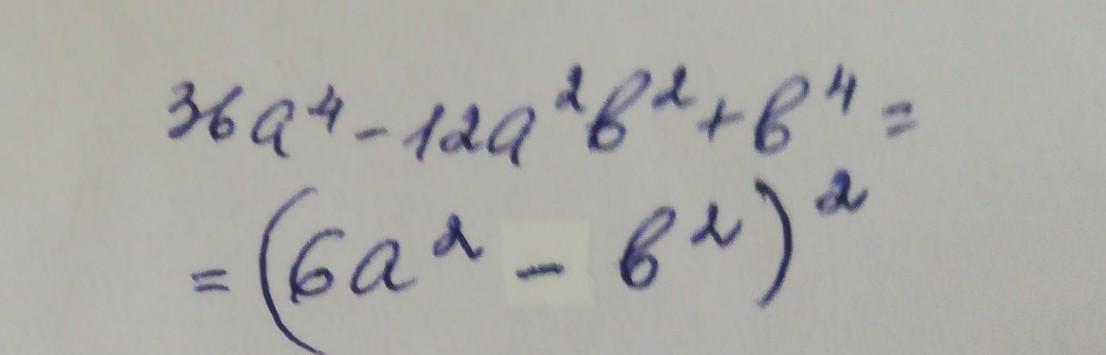 36a⁴-12a²b²+b⁴=
=(6a²-b²)²